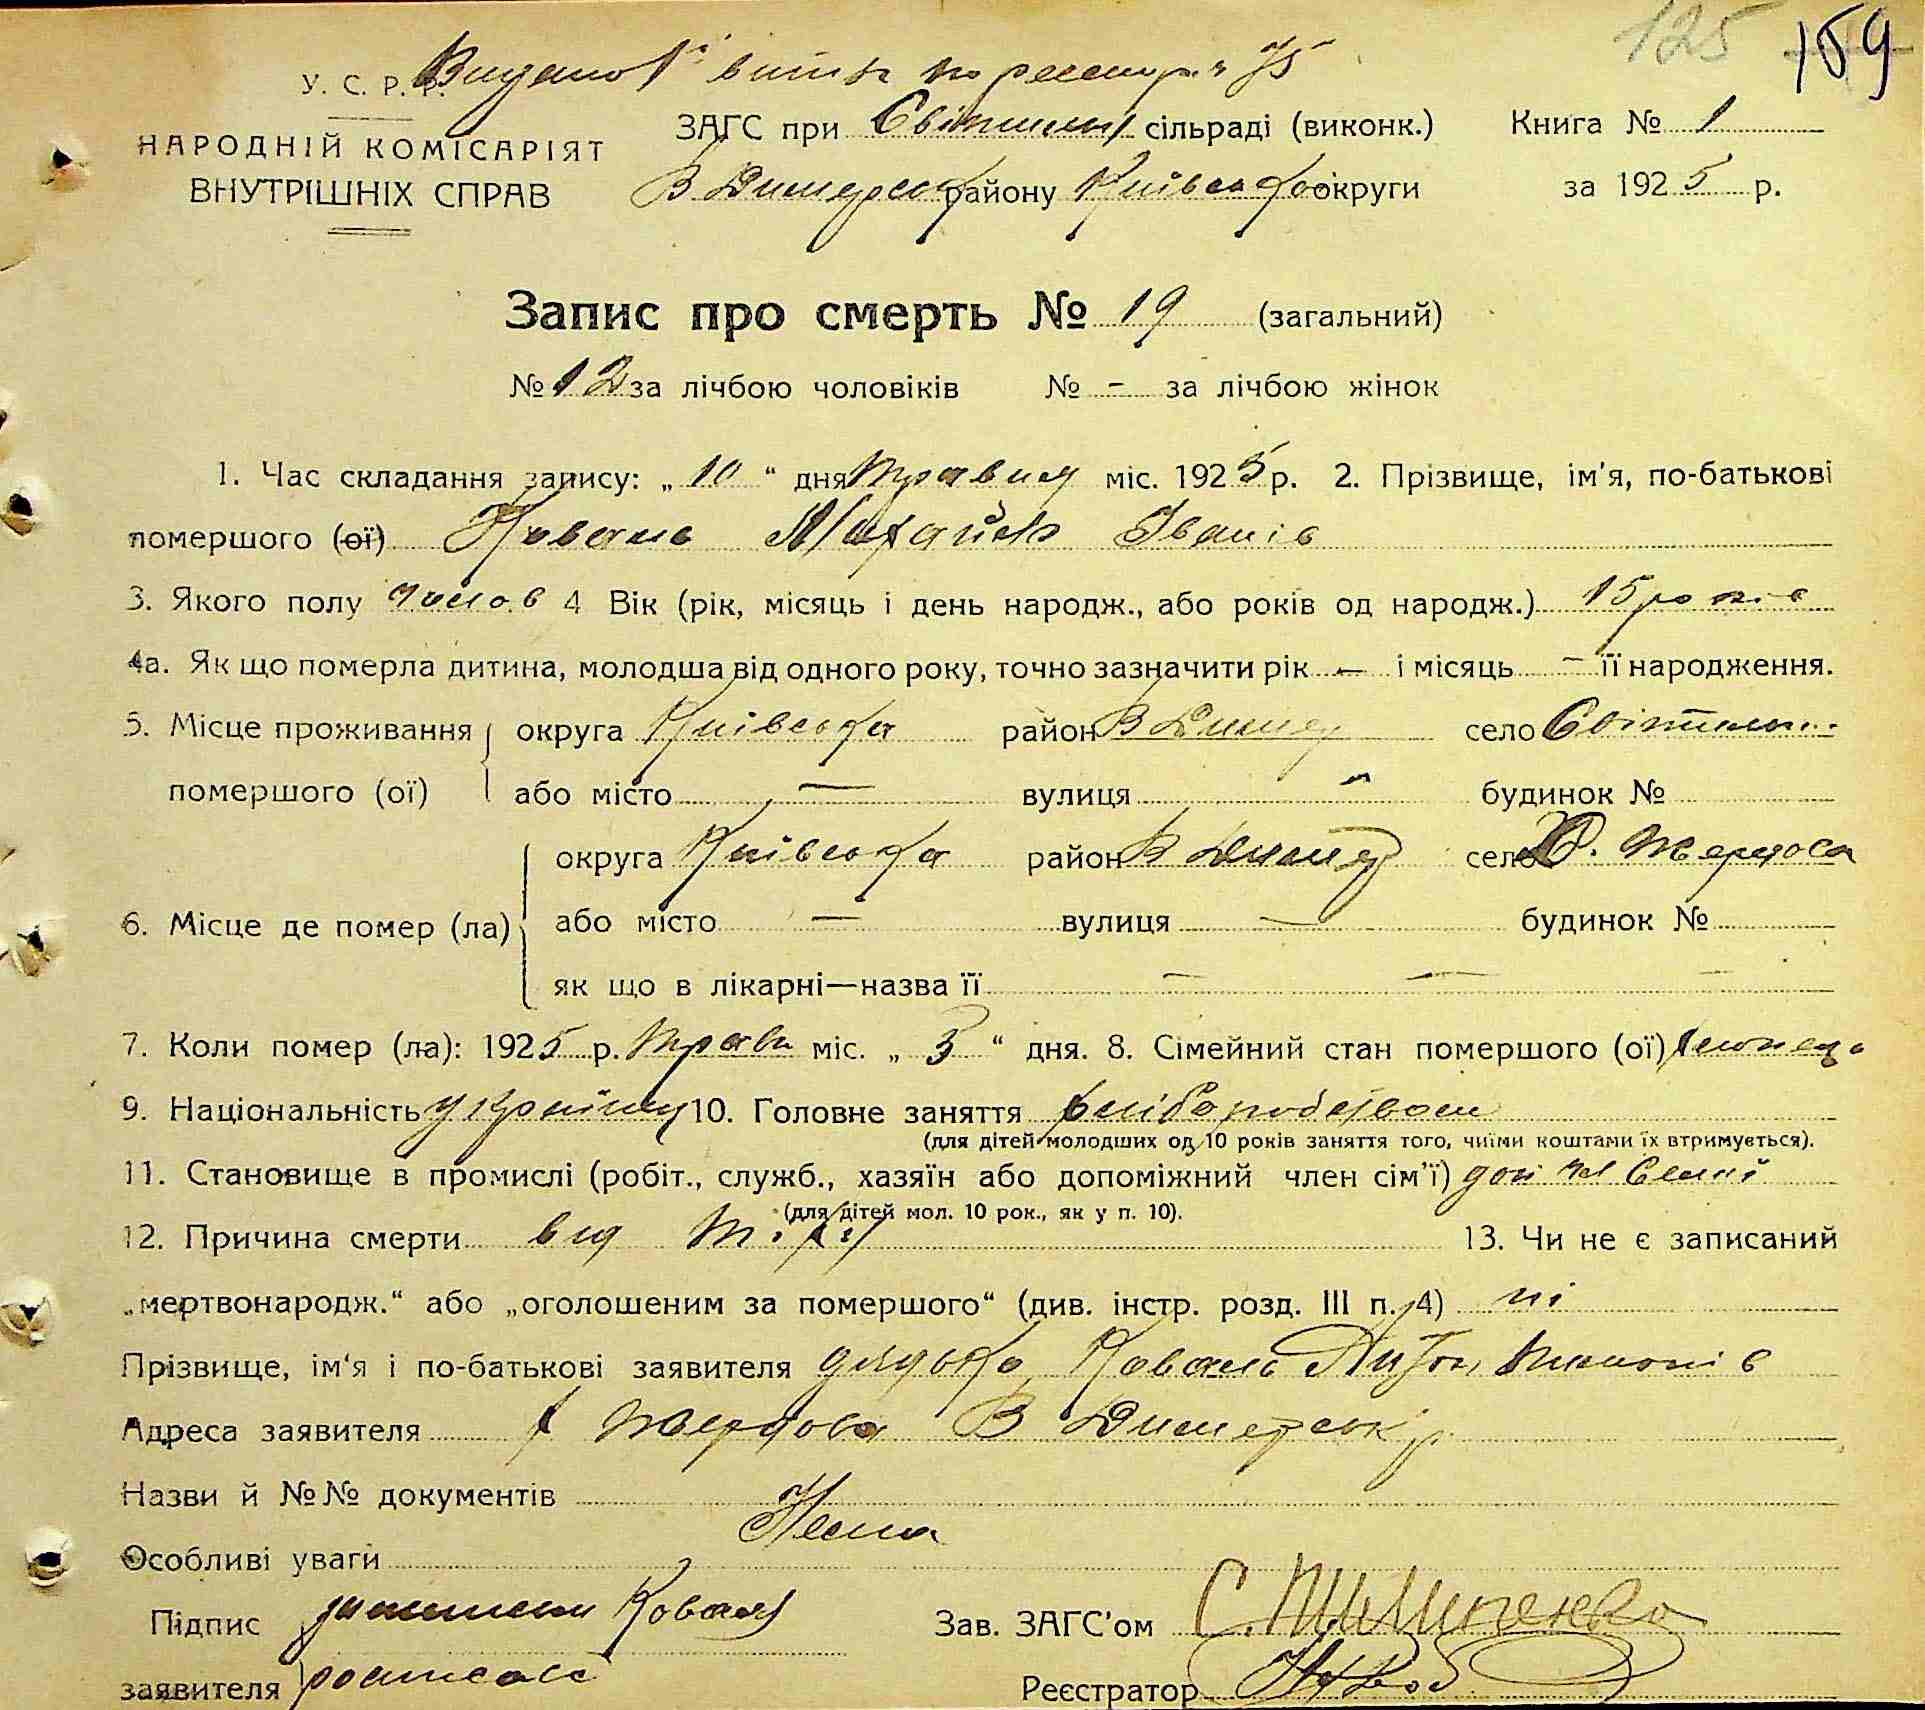 125 159
Видано витяг по реестру № 75
У. С. Р. Р.
НАРОДНІЙ КОМІСАРІЯТ
ВНУТРІШНІХ СПРАВ
ЗАГС при Світильн сільраді (виконк.) Книга № 1
В Димерськ району Київської округи за 1925 р.
Запис про смерть № 19 (загальний)
№ 12 за лічбою чоловіків № - за лічбою жінок
1. Час складання запису: „ 10 “ дня травня міс. 1925 р. 2. Прізвище, ім'я, по-батькові
помершого (ої) Коваль Михайло Іванів
3. Якого полу чолов 4 Вік (рік, місяць і день народж., або років од народж.) 15 років
4а. Як що померла дитина, молодша від одного року, точно зазначити рік — і місяць — її народження.
5. Місце проживання округа Київська район В Димер село Світильн
помершого (ої) або місто — вулиця " будинок №
округа Київська район В Димер село Х. Жердова
6. Місце де помер (ла) або місто — вулиця — будинок №
як що в лікарні—назва її — — —
7. Коли помер (ла): 1925 р. Трав міс. „ 3 “ дня. 8. Сімейний стан помершого (ої)
9. Національність україн 10. Головне заняття хліборобством
(для дітей молодших од 10 років заняття того, чиїми коштами їх втримується).
11. Становище в промислі (робіт., служб., хазяїн або допоміжний член сім'ї) доп чл семї
(для дітей мол. 10 рок., як у п. 10).
12. Причина смерти від 13. Чи не є записаний
„мертвонародж.“ або „оголошеним за помершого“ (див. інстр. розд. III п. 4) ні
Прізвище, ім‘я і по-батькові заявителя дядько Коваль Антон
Адреса заявителя х Жердова В Димерськ р.
Назви й №№ документів
Нема
Особливі уваги
Підпис Коваль Зав. ЗАГС'ом С. Пилипенко
заявителя росписал Реєстратор